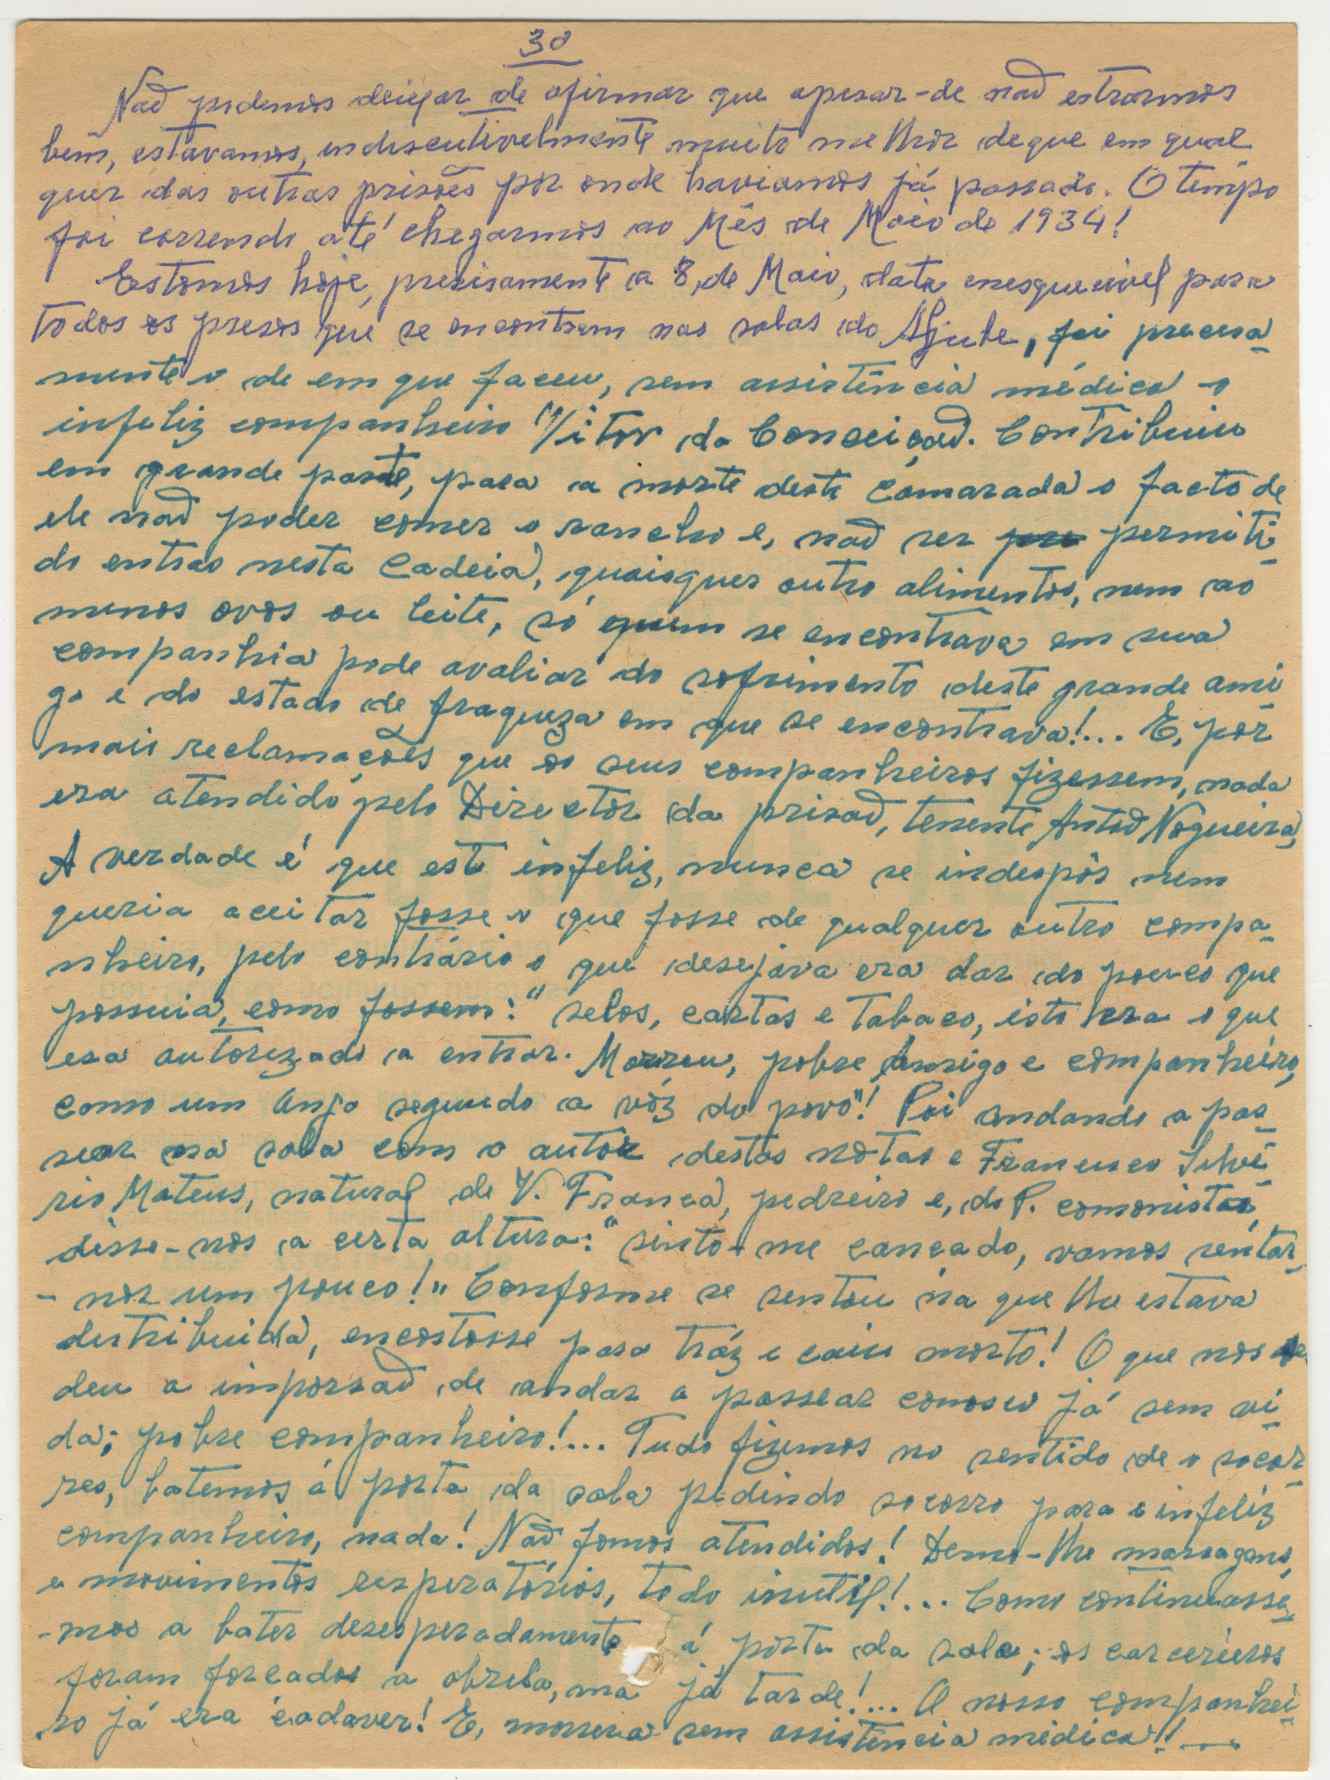 30
Naõ podemos deixar de afirmar que apesar-de naõ estrarmos
bem, estavamos, indiscutivelmente muito melhor deque em qual
quer das outras prisoẽs por onde haviamos já passado. O tempo
foi correndo até chegarmos ao Mês de Maio de 1934!
Estamos hoje, precisamente a 8, de Maio, data enesquecivel para
todos os presos que se encontram nas salas do Aljube, foi precisa
mente o de em que faceu, sem assistência médica o
infeliz companheiro Vitor da Conceiçaõ. Contribuiu
em grande parte, para a morte deste Camarada o facto de
ele naõ poder comer o rancho e, naõ ser permiti
do entrar nesta Cadeia, quaisquer outro alimentos, nem ao
menos ovos ou leite, só quem se encontrava em sua
companhia pode avaliar do sofrimento deste grande ami
go e do estado de fraqueza em que se encontrava!... E, por
mais reclamaçoẽs que os seus companheiros fizessem, nada
era atendido pelo Director da prisaõ, tenente Antoõ Nogueira,
A verdade é que este infeliz, nunca se indespôs nem
queria aceitar fosse o que fosse de qualquer outro compa-
nheiro, pelo contrário o que desejava era dar do pouco que
possuia, como fossem: "selos, cartas e tabaco, isto era o que
era autorizado a entrar. Morreu, pobre Amigo e companheiro,
como um Anjo segundo a vóz do povo"! Foi andando a pas-
sear na sala com o autor destas notas e Francisco Silvé
rio Mateus, natural de V. Franca, pedreiro e, do P. comonista,
disse-nos a certa altura: "sinto-me cançado, vamos sentar-
-nos um pouco!" Conforme se sentou na que lhe estava
destribuida, encostosse para tráz e caiu morto! O que nos
deu a imporsaõ de andar a passear conosco já sem vi-
da; pobre companheiro!... Tudo fizemos no sentido de o socor-
rer, batemos á porta da sala pedindo socorro para o infeliz
companheiro, nada! Naõ fomos atendidos! Demo-lhe massagens,
e movimentos respiratórios, todo inutil!... Como continuasse-
-mos a bater desesperadamente á porta da sala; os carcereiros
foram forcados a abrila, ma já tarde!... O nosso companhei-
ro já era cadaver! E, morrera sem assistência médica!!